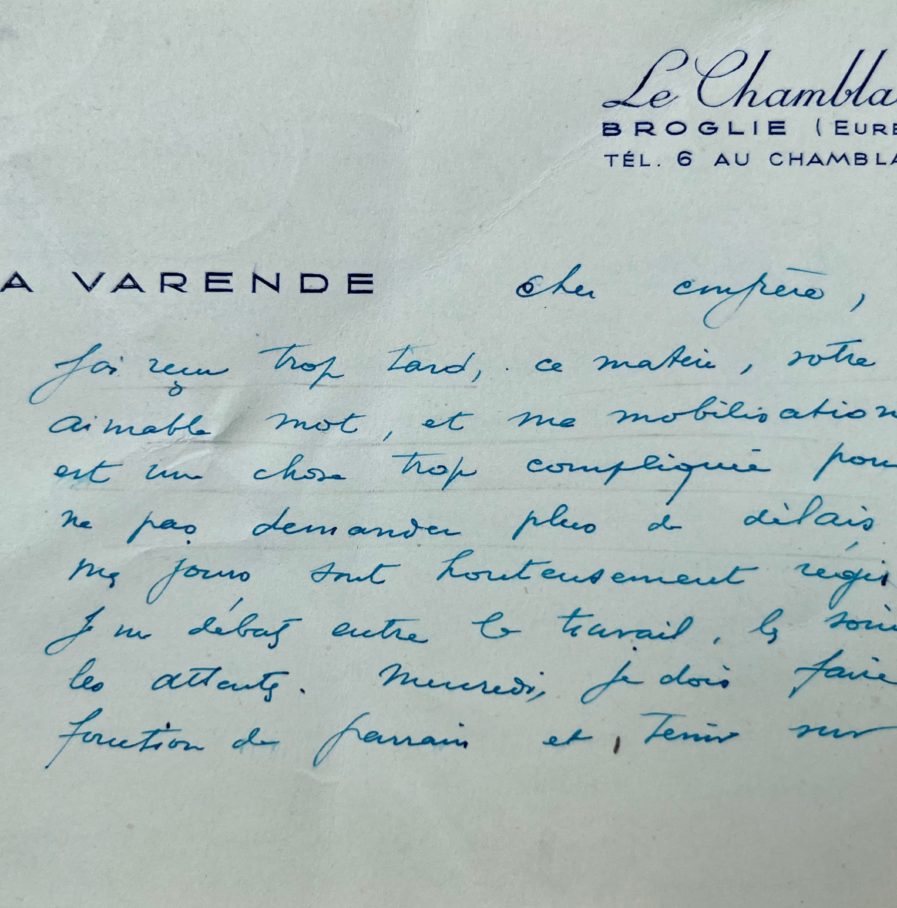 Le Chambla
BROGLIE (EURE
TÉL. 6 AU CHAMBLA
A VARENDE
Cher confrère,
J'ai reçu trop tard, ce matin, votre
aimable mot, et ma mobilisation
est une chose trop compliquée pour
ne pas demander plus de délais
mes jours sont honteusement régis
Je me débats entre le travail, les soins
les attentes. Mercredi, je dois faire
fonction de parrain et tenir sur